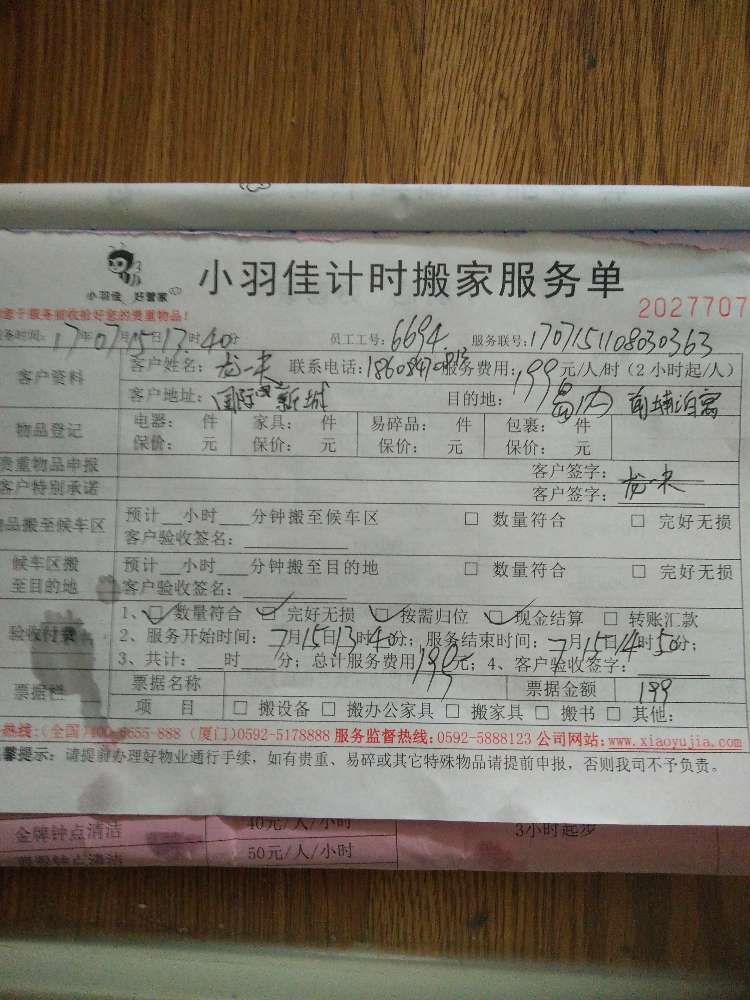 小羽佳 好管家
小羽佳计时搬家服务单
2027707
务时间: 17年07月15日13时40分 员工工号: 6694 服务联号: 1707151108030363
客户资料 客户姓名: 联系电话: 服务费用: 199元/人/时(2小时起/人)
客户地址: 国际 新城 目的地: 岛内
物品登记 电器: 件 家具: 件 易碎品: 件 包裹: 件
保价: 元 保价: 元 保价: 元 保价: 元
贵重物品申报 客户签字:
客户特别承诺 客户签字:
品搬至候车区 预计 小时 分钟搬至候车区 □ 数量符合 □ 完好无损
客户验收签名:
候车区搬至目的地 预计 小时 分钟搬至目的地 □ 数量符合 □ 完好无损
客户验收签名:
验收付款 1、☑ 数量符合 ☑ 完好无损 ☑ 按需归位 ☑ 现金结算 □ 转账汇款
2、服务开始时间: 7月15日13时40分; 服务结束时间: 7月15日14时50分;
3、共计: 时 分; 总计服务费用199元; 4、客户验收签字:
票据栏 票据名称 票据金额 199
项 目 □ 搬设备 □ 搬办公家具 □ 搬家具 □ 搬书 □ 其他:
热线:(全国)400-6655-888 (厦门)0592-5178888 服务监督热线:0592-5888123 公司网站:www.xiaoyujia.com
馨提示: 请提前办理好物业通行手续, 如有贵重、易碎或其它特殊物品请提前申报, 否则我司不予负责。
金牌钟点清洁 40元/人/小时 3小时起步
50元/人/小时